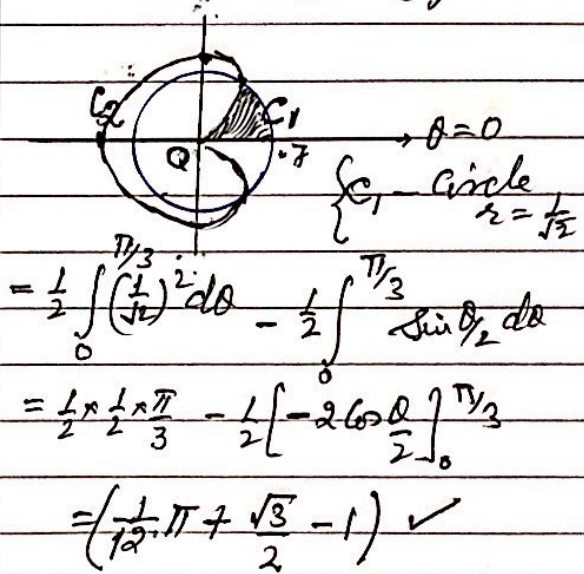 C2 C1
Q .7 θ=0
{C₁ – Circle
r = 1/√2
= 1/2 ∫₀^{π/3} (1/√2)² dθ – 1/2 ∫₀^{π/3} sin θ/2 dθ
= 1/2 × 1/2 × π/3 – 1/2 [–2 cos θ/2]₀^{π/3}
= (1/12 . π + √3/2 – 1) ✓